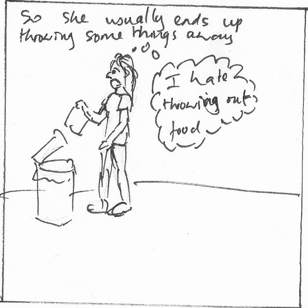 So she usually ends up
throwing some things away
I hate
throwing out
food